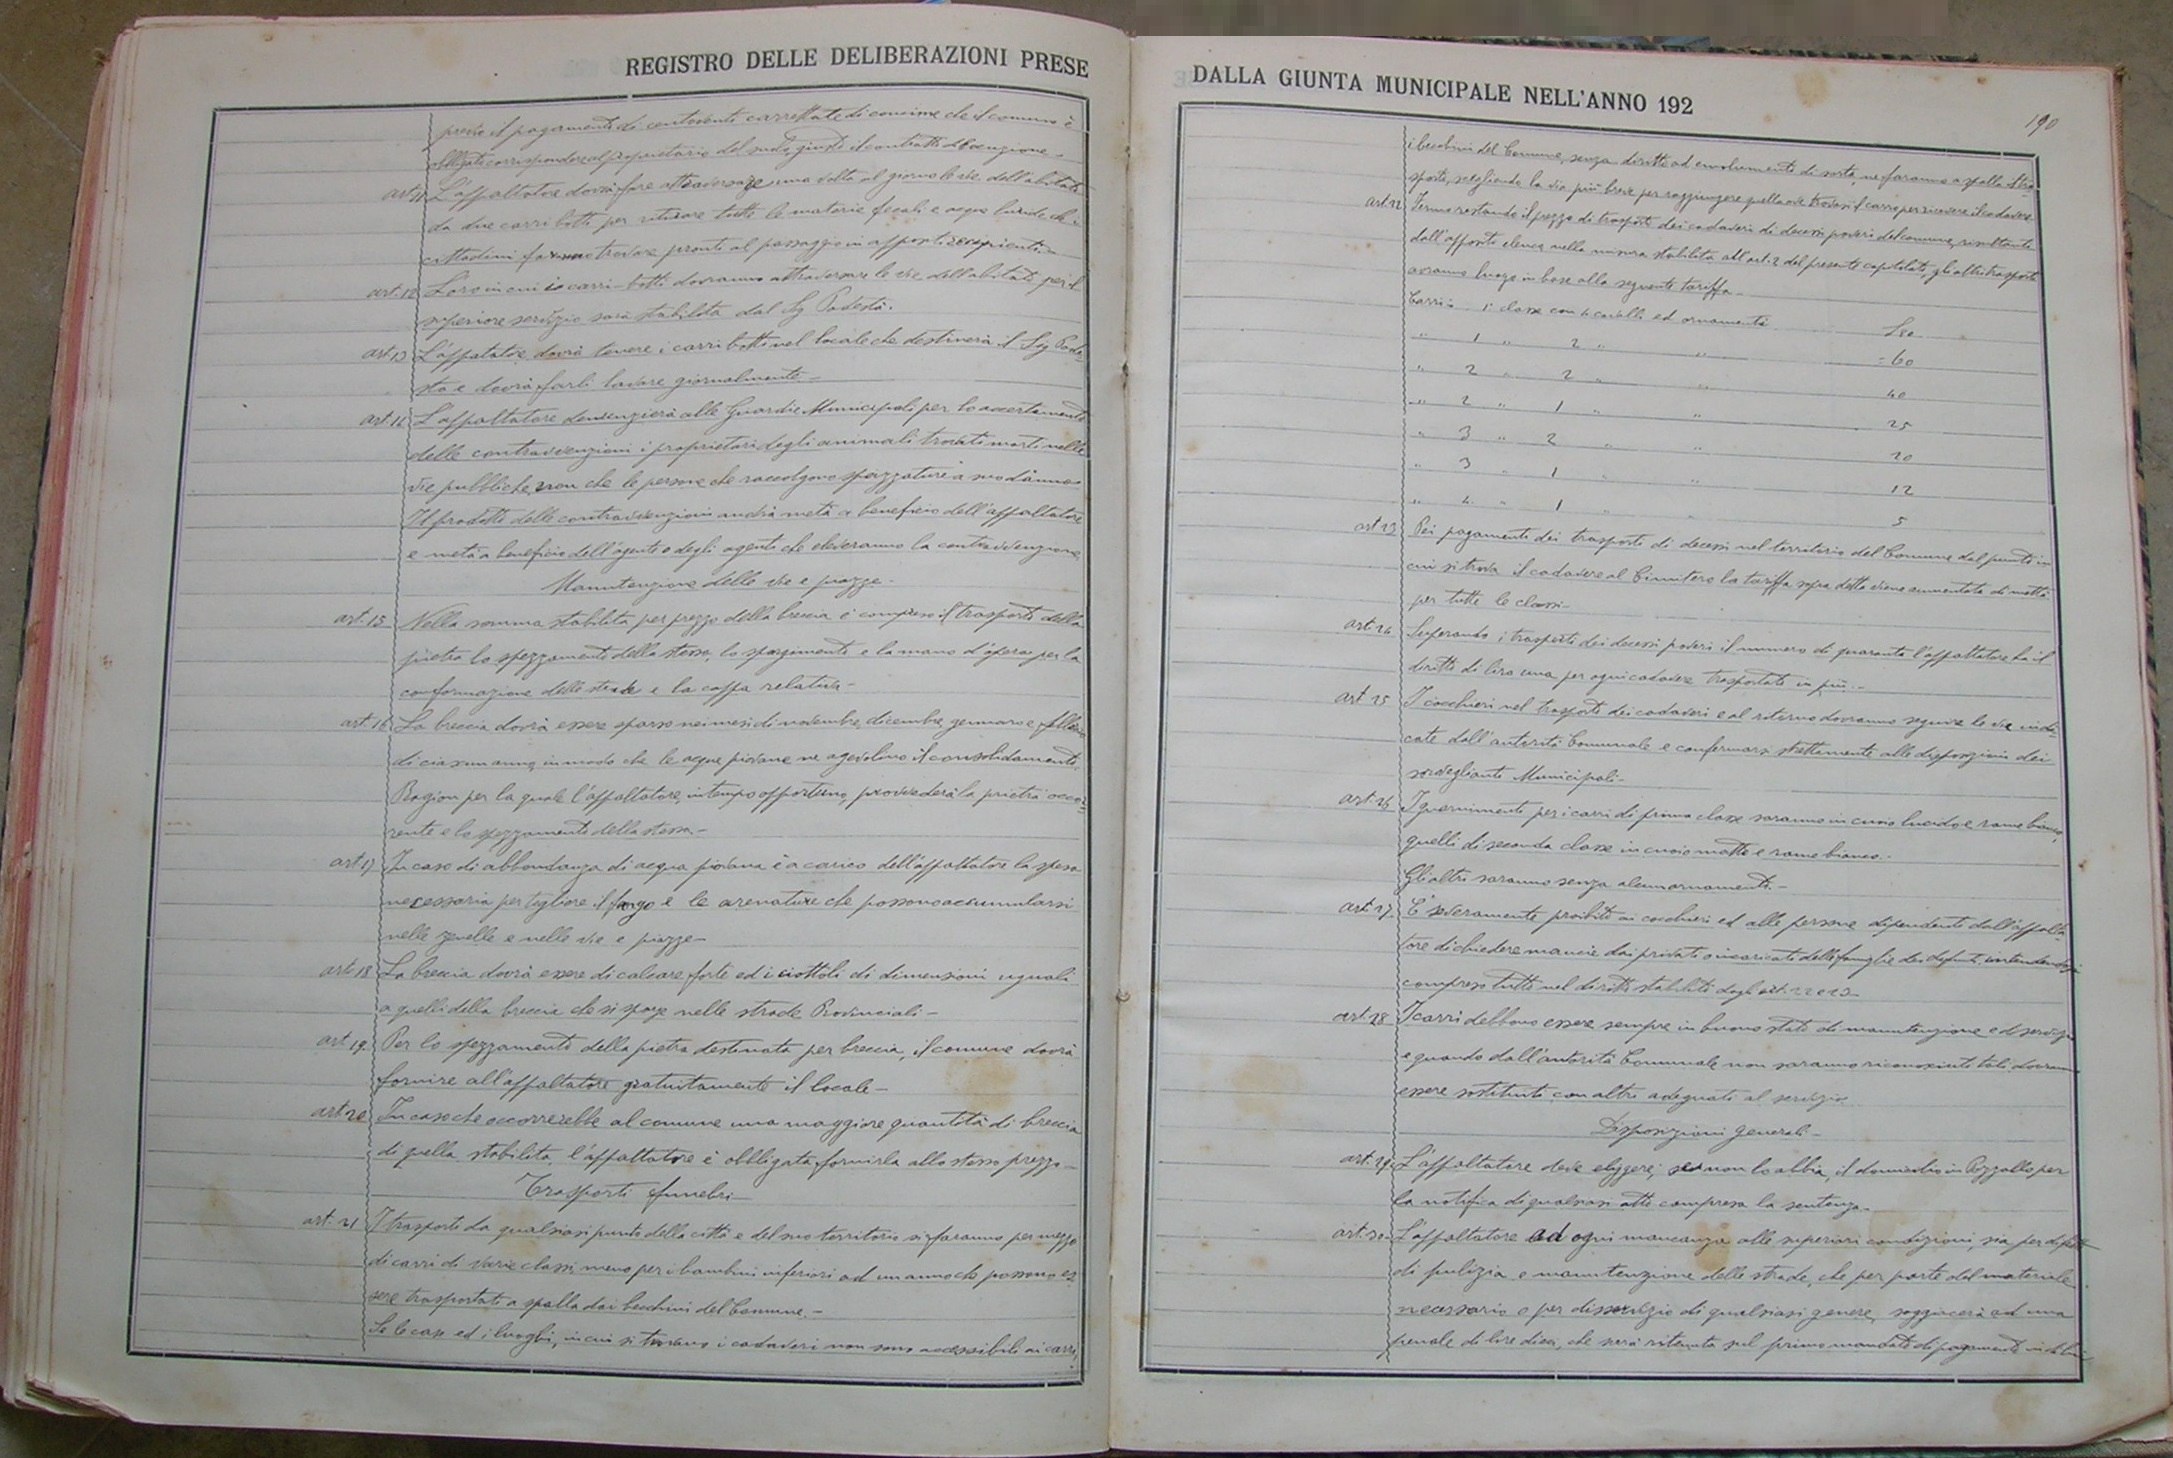 REGISTRO DELLE DELIBERAZIONI PRESE
presso il pagamento di centoventi carrettate di concime che il comune è
obbligato corrispondere al proprietario del suolo, giusto il contratto di locazione
art. 11 L'appaltatore dovrà fare attraversare una volta al giorno le vie dell'abitato
da due carri botti per ritirare tutte le materie fecali e acque luride che i
cittadini faranno trovare pronti al passaggio in appositi recipienti.-
art. 12 L'ora in cui i carri-botti dovranno attraversare le vie dell'abitato per il
superiore servizio sarà stabilita dal Sig Podestà.
art. 13 L'appaltatore dovrà tenere i carri botti nel locale che destinerà il Sig Pode-
stà e dovrà farli lavare giornalmente-
art. 14 L'appaltatore denunzierà alle Guardie Municipali per lo accertamento
delle contravvenzioni i proprietari degli animali trovati morti nelle
vie pubbliche, non che le persone che raccolgono spazzature a suo danno
Il prodotto delle contravvenzioni andrà metà a beneficio dell'appaltatore
e metà a beneficio dell'agente o degli agenti che eleveranno la contravvenzione
Manutenzione delle vie e piazze-
art. 15 Nella somma stabilita per prezzo della breccia è compreso il trasporto della
pietra lo spezzamento della stessa, lo spargimento e la mano d'opera per la
conformazione delle strade e la cassa relativa-
art. 16 La breccia dovrà essere sparsa nei mesi di novembre, dicembre, gennaro e febbraio
di ciascun anno, in modo che le acque piovane ne agevolino il consolidamento.
Ragion per la quale l'appaltatore, in tempo opportuno, provvederà la pietra occor-
rente e lo spezzamento della stessa.-
art. 17 In caso di abbondanza di acqua piovana è a carico dell'appaltatore la spesa
necessaria per togliere il fango e le arenature che possono accumularsi
nelle zanelle e nelle vie e piazze-
art. 18 La breccia dovrà essere di calcare forte ed i ciottoli di dimensioni uguali
a quelli della breccia che si sparge nelle strade Provinciali-
art. 19. Per lo spezzamento della pietra destinata per breccia, il comune dovrà
fornire all'appaltatore gratuitamente il locale-
art. 20 In caso che occorrerebbe al comune una maggiore quantità di breccia
di quella stabilita, l'appaltatore è obbligato fornirla allo stesso prezzo-
Trasporti funebri-
art. 21 I trasporti da qualsiasi punto della città e del suo territorio si faranno per mezzo
di carri di varie classi, meno per i bambini inferiori ad un anno che possono es-
sere trasportati a spalla dai becchini del Comune.-
Se le case ed i luoghi, in cui si trovano i cadaveri non sono accessibili ai carri,
DALLA GIUNTA MUNICIPALE NELL'ANNO 192
190
i becchini del Comune, senza diritto ad emolumento di sorta, ne faranno a spalla il tra-
sporto, scegliendo la via più breve per raggiungere quella ove trovasi il carro per ricevere il cadavere
art. 22 Fermo restando il prezzo di trasporto dei cadaveri di decessi poveri del comune, risultante
dall'apposito elenco, nella misura stabilita all'art. 2 del presente capitolato, gli altri trasporti
avranno luogo in base alla seguente tariffa-
Carri: 1° classe con 4 cavalli ed ornamenti L 80
" 1 " 2 " " = 60
" 2 " 2 " " 40
" 2 " 1 " " 25
" 3 " 2 " " 20
" 3 " 1 " " 12
" 4 " 1 " 5
art. 23 Pei pagamenti dei trasporti di decessi nel territorio del Comune dal punto in
cui si trova il cadavere al Cimitero la tariffa sopra detta viene aumentata di metà
per tutte le classi-
art. 24 Superando i trasporti dei decessi poveri il numero di quaranta l'appaltatore ha il
diritto di lira una per ogni cadavere trasportato in più.-
art. 25 I cocchieri nel trasporto dei cadaveri e al ritorno dovranno seguire le vie indi-
cate dall'autorità Comunale e confermarsi strettamente alle disposizioni dei
sorveglianti Municipali-
art. 26 I guernimenti per i carri di prima classe saranno in cuoio lucido e rame bianco,
quelli di seconda classe in cuoio matto e rame bianco.-
Gli altri saranno senza alcun ornamento.-
art. 27 E' severamente proibito ai cocchieri ed alle persone dipendenti dall'appalta-
tore di chiedere mancie dai privati o incaricati delle famiglie dei defunti, intendendosi
compreso tutto nel diritto stabilito dagli art. 22 e 23-
art. 28 I carri debbono essere sempre in buono stato di manutenzione e di servizio
e quando dall'autorità Comunale non saranno riconosciuti tali dovranno
essere sostituiti con altri adeguati al servizio
Disposizioni generali-
art. 29 L'appaltatore deve eleggere, se non lo abbia, il domicilio in Pozzallo per
la notifica di qualsiasi atto compresa la sentenza-
art. 30 L'appaltatore ad ogni mancanza alle superiori condizioni, sia per difetto
di pulizia e manutenzione delle strade, che per parte del materiale
necessario o per disservizio di qualsiasi genere, soggiacerà ad una
penale di lire dieci, che sarà ritenuta sul primo mandato di pagamento